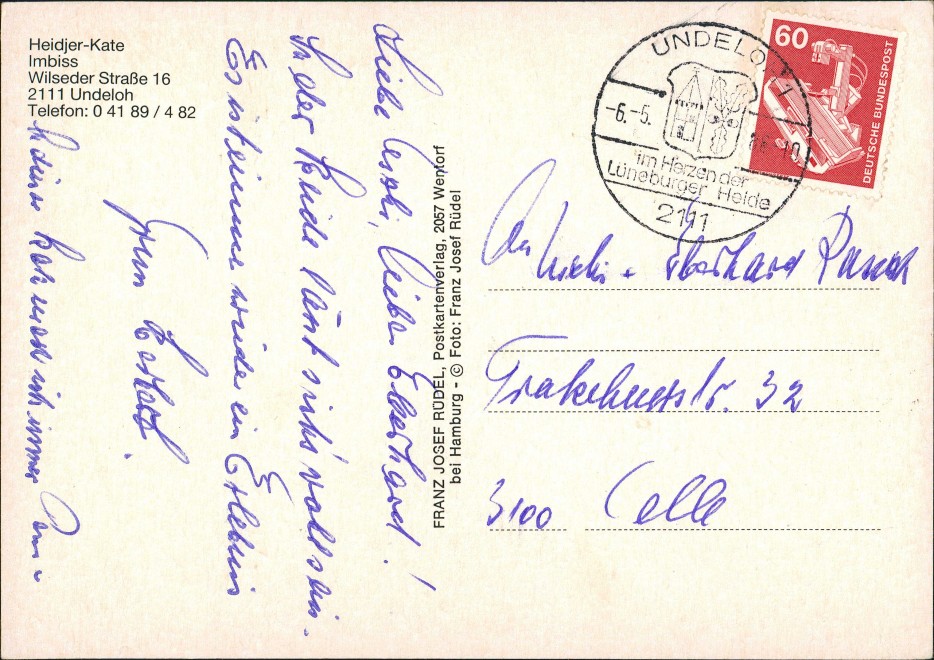 Heidjer-Kate
Imbiss
Wilseder Straße 16
2111 Undeloh
Telefon: 0 41 89 / 4 82
Liebe Uschi, lieber Eberhard!
In der Heide läßt sich's wohl sein.
Es ist immer wieder ein Erlebnis
FRANZ JOSEF RÜDEL, Postkartenverlag, 2057 Wentorf
bei Hamburg - © Foto: Franz Josef Rüdel
UNDELOH 1
-6.-5.
-10
im Herzen der
Lüneburger Heide
2111
60
DEUTSCHE BUNDESPOST
An Uschi + Eberhard
Trakehnerstr. 32
3100 Celle